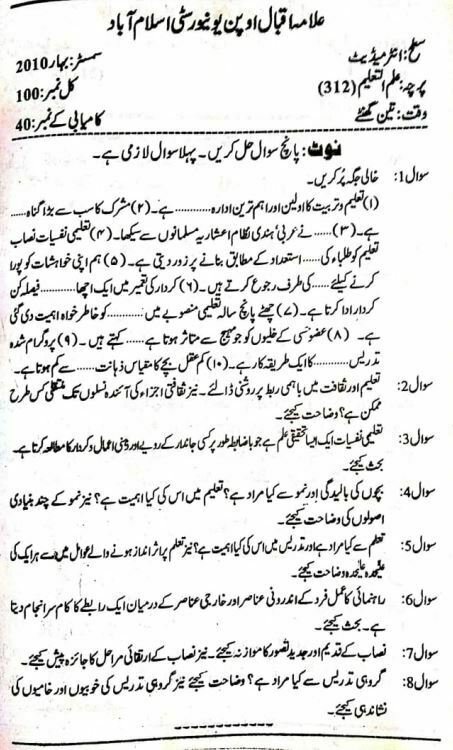 علامہ اقبال اوپن یونیورسٹی اسلام آباد
سطح: انٹرمیڈیٹ سمسٹر: بہار 2010
پرچہ: علم التعلیم (312) کل نمبر: 100
وقت: تین گھنٹے کامیابی کے نمبر: 40
نوٹ: پانچ سوال حل کریں۔ پہلا سوال لازمی ہے۔
سوال 1: خالی جگہ پُر کریں۔
(۱) تعلیم و تربیت کا اولین اور اہم ترین ادارہ............ ہے۔ (۲) مشرک کا سب سے بڑا گناہ......
ہے۔ (۳) ...... نے عربی/ہندی نظام اعشاریہ مسلمانوں سے سیکھا۔ (۴) تعلیمی نفسیات نصاب
تعلیم کو طلباء کی ...... استعداد کے مطابق بنانے پر زور دیتی ہے۔ (۵) ہم اپنی خواہشات کو پورا
کرنے کیلئے...... کی طرف رجوع کرتے ہیں۔ (۶) کردار کی تعمیر میں ایک اچھا............ فیصلہ کن
کردار ادا کرتا ہے۔ (۷) چھٹے پانچ سالہ تعلیمی منصوبے میں ............ کو خاطر خواہ اہمیت دی گئی
ہے۔ (۸) عضو حسی کے خلیوں کو جو مہیج سے متاثر ہوتا ہے............ کہتے ہیں۔ (۹) پروگرام شدہ
تدریس............ کا ایک طریقہ کار ہے۔ (۱۰) کم عقل بچے کا مقیاس ذہانت ...... سے کم ہوتا ہے۔
سوال 2: تعلیم اور ثقافت میں باہمی ربط پر روشنی ڈالئے۔ نیز ثقافتی اجزاء کی آئندہ نسلوں تک منتقلی کس طرح
ممکن ہے؟ وضاحت کیجئے۔
سوال 3: تعلیمی نفسیات ایک ایسا تحقیقی علم ہے جو باضابطہ طور پر کسی جاندار کے رویے اور ذہنی اعمال و کردار کا مطالعہ کرتا ہے۔
بحث کیجئے۔
سوال 4: بچوں کی بالیدگی اور نمو سے کیا مراد ہے؟ تعلیم میں اس کی کیا اہمیت ہے؟ نیز نمو کے چند بنیادی
اصولوں کی وضاحت کیجئے۔
سوال 5: تعلم سے کیا مراد ہے اور تدریس میں اس کی کیا اہمیت ہے؟ نیز تعلم پر اثر انداز ہونے والے عوامل میں سے ہر ایک کی
علیحدہ علیحدہ وضاحت کیجئے۔
سوال 6: راہنمائی کا عمل فرد کے اندرونی عناصر اور خارجی عناصر کے درمیان ایک رابطے کا کام سرانجام دیتا
ہے۔ بحث کیجئے۔
سوال 7: نصاب کے قدیم اور جدید تصور کا موازنہ کیجئے۔ نیز نصاب کے ارتقائی مراحل کا جائزہ پیش کیجئے۔
سوال 8: گروہی تدریس سے کیا مراد ہے؟ وضاحت کیجئے نیز گروہی تدریس کی خوبیوں اور خامیوں کی
نشاندہی کیجئے۔